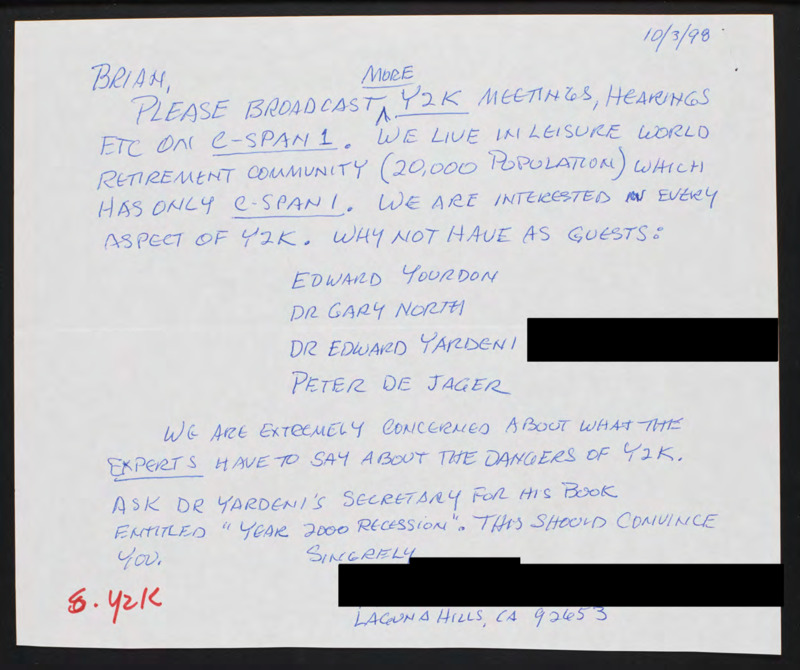 10/3/98
BRIAN,
MORE
PLEASE BROADCAST Y2K MEETINGS, HEARINGS
ETC ON C-SPAN 1. WE LIVE IN LEISURE WORLD
RETIREMENT COMMUNITY (20,000 POPULATION) WHICH
HAS ONLY C-SPAN 1. WE ARE INTERESTED IN EVERY
ASPECT OF Y2K. WHY NOT HAVE AS GUESTS:
EDWARD YOURDON
DR GARY NORTH
DR EDWARD YARDENI
PETER DE JAGER
WE ARE EXTREMELY CONCERNED ABOUT WHAT THE
EXPERTS HAVE TO SAY ABOUT THE DANGERS OF Y2K.
ASK DR YARDENI'S SECRETARY FOR HIS BOOK
ENTITLED "YEAR 2000 RECESSION". THIS SHOULD CONVINCE
YOU. SINCRELY
8. Y2K
LAGUNA HILLS, CA 92653